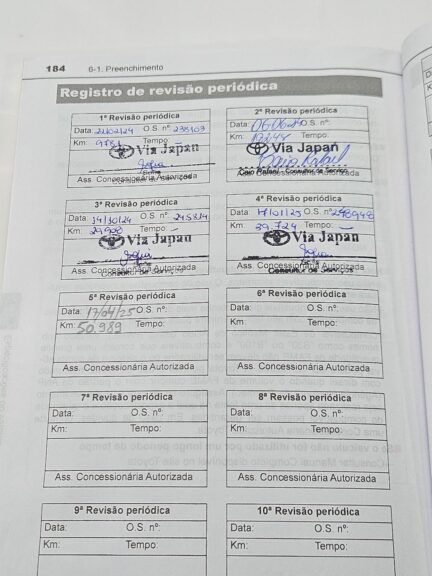 184 6-1. Preenchimento
Registro de revisão periódica
1ª Revisão periódica
Data: 22/02/24 O.S. nº: 238103
Km: Tempo:
Via Japan
Consultor de Serviços
Ass. Concessionária Autorizada
2ª Revisão periódica
Data: 06.06.24 O.S. nº:
Km: Tempo:
Via Japan
Caio Rafael
Caio Rafael - Consultor de Serviço
Ass. Concessionária Autorizada
3ª Revisão periódica
Data: 14/10/24 O.S. nº: 245814
Km: 29908 Tempo: –
Via Japan
Consultor de Serviços
Ass. Concessionária Autorizada
4ª Revisão periódica
Data: 17/01/25 O.S. nº: 248948
Km: 39.724 Tempo: –
Via Japan
Consultor de Serviços
Ass. Concessionária Autorizada
5ª Revisão periódica
Data: 17/04/25 O.S. nº:
Km: 50.989 Tempo:
Ass. Concessionária Autorizada
6ª Revisão periódica
Data: O.S. nº:
Km: Tempo:
Ass. Concessionária Autorizada
7ª Revisão periódica
Data: O.S. nº:
Km: Tempo:
Ass. Concessionária Autorizada
8ª Revisão periódica
Data: O.S. nº:
Km: Tempo:
Ass. Concessionária Autorizada
9ª Revisão periódica
Data: O.S. nº:
Km: Tempo:
10ª Revisão periódica
Data: O.S. nº:
Km: Tempo: